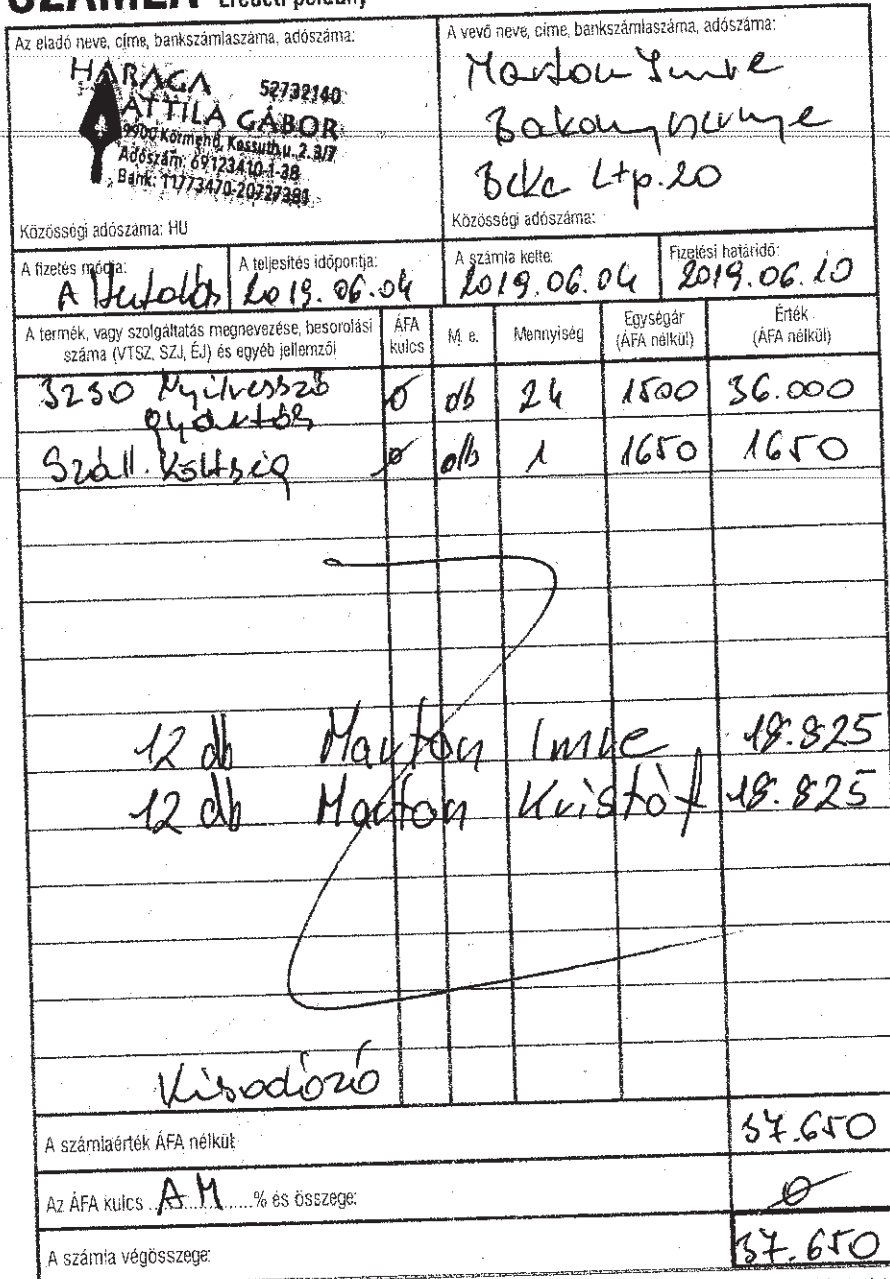 SZÁMLA Eredeti példány
Az eladó neve, címe, bankszámlaszáma, adószáma:
HARAGA 52732140
ATTILA GÁBOR
9900 Körmend, Kossuth u. 2. 3/7
Adószám: 69123410-1-38
Bank: 11773470-20727381
Közösségi adószáma: HU
A vevő neve, címe, bankszámlaszáma, adószáma:
Marton Imre
Beke Ltp. 20
Közösségi adószáma:
A fizetés módja:
A teljesítés időpontja:
A számla kelte:
Fizetési határidő:
Átutalás 2019.06.04 2019.06.04 2019.06.10
A termék, vagy szolgáltatás megnevezése, besorolási száma (VTSZ, SZJ, ÉJ) és egyéb jellemzői
ÁFA kulcs
M. e.
Mennyiség
Egységár (ÁFA nélkül)
Érték (ÁFA nélkül)
3230 Nyílvessző 0 db 24 1500 36.000
gyártás
Száll. költség 0 db 1 1650 1650
12 db Marton Imre 18.825
12 db Marton Kristóf 18.825
Kisadózó
A számlaérték ÁFA nélkül: 37.650
Az ÁFA kulcs AM % és összege: 0
A számla végösszege: 37.650